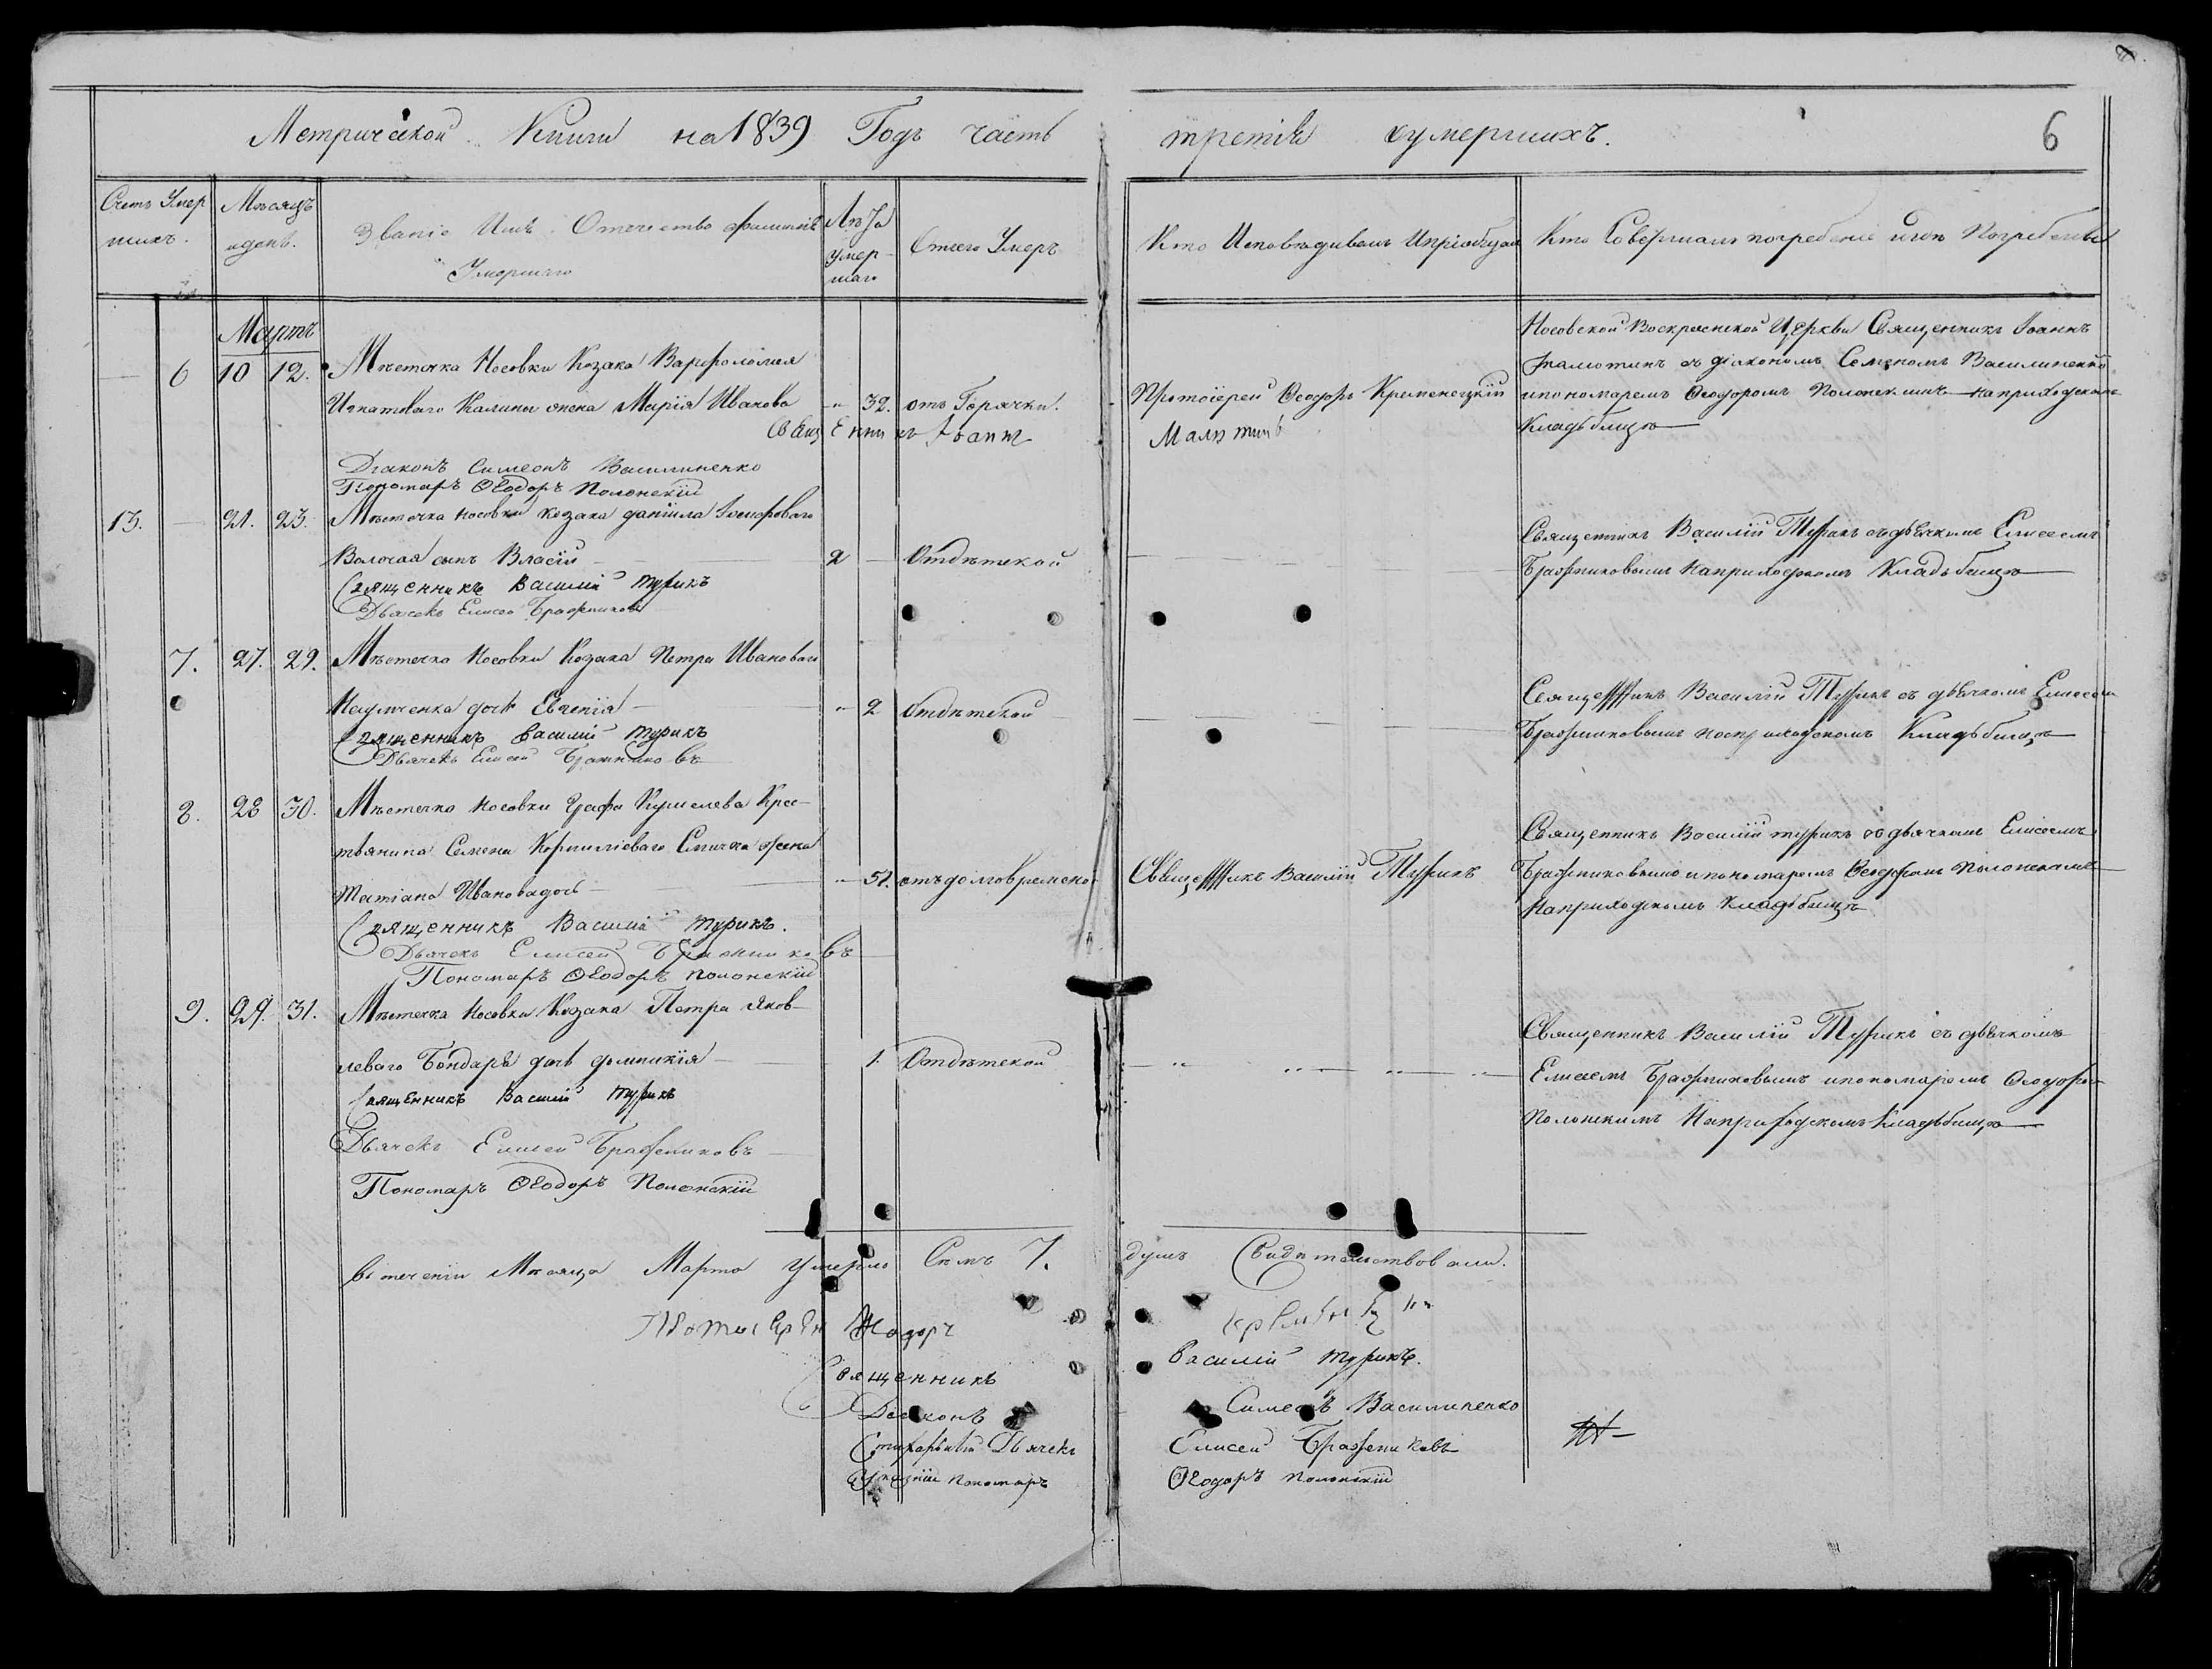 Метрической Книги на 1839 Годъ часть третія оумершихъ. 6
Счетъ Умер
шихъ.
Мѣсяцъ
и день.
Званіе Имя Отчество фамилія
Умершаго
Лѣта
умер-
шаго
Отчего Умеръ
Кто Исповѣдивалъ и пріобщалъ
Кто Совершалъ погребеніе и гдѣ Погребены
Мартъ
6 10 12. Мѣстечка Носовки Козака Варфоломея
Игнатоваго Калины жена Марія Иванова 32. отъ Горячки. Протоіерей Ѳеодоръ Кременецкій
Священникъ Іоаннъ Малютинъ
Діаконъ Симеонъ Василиненко
Пономаръ Ѳеодоръ Полонскій
Носовской Воскресенской Церкви Священникъ Іоаннъ
Малютинъ съ діакономъ Семеномъ Василиненко
и пономаремъ Ѳеодоромъ Полонскимъ на приходскомъ
Кладьбищѣ
13. 21. 23. Мѣстечка Носовки козака даніила
Волочая сынъ Власій 2 Отдѣтской
Священникъ Василій Турикъ
Дьячекъ Елисей Бражниковъ
Священникъ Василій Турикъ съ дьячкомъ Елисеемъ
Бражниковымъ на приходскомъ Кладьбищѣ
7. 27. 29. Мѣстечка Носовки Козака Петра Иванового
Науменка дочь Евгенія 2 Отдѣтской
Священникъ Василій Турикъ
Дьячекъ Елисей Бражниковъ
Священникъ Василій Турикъ съ дьячкомъ Елисеем
Бражниковымъ на приходскомъ Кладьбищѣ
8. 28 30. Мѣстечка Носовки Графа Кушелева Крес-
тьянина Семена Корниліеваго жена
Татіана Иванова дочь 51. отъ долговремено Священникъ Василій Турикъ
Священникъ Василій Турикъ.
Дьячекъ Елисей Бражниковъ
Пономаръ Ѳеодоръ Полонскій
Священникъ Василій Турикъ съ дьячкомъ Елисеемъ
Бражниковымъ и пономаремъ Ѳеодоромъ Полонскимъ
На приходскомъ Кладьбищѣ
9. 29. 31. Мѣстечка Носовки Козака Петра Яков-
левого Бондаря дочь домникія 1. Отдѣтской
Священникъ Василій Турикъ
Дьячекъ Елисей Бражниковъ
Пономаръ Ѳеодоръ Полонскій
Священникъ Василій Турикъ съ дьячкомъ
Елисеемъ Бражниковымъ и пономаремъ Ѳеодоро
Полонскимъ На приходскомъ Кладьбищѣ
Въ теченіи Мѣсяца Марта Умерло Семъ 7. душъ Свидѣтельствовали.
Протоіерей Ѳеодоръ
Священникъ Василій Турикъ.
Діаконъ Симеонъ Василиненко
Стихарный Дьячекъ Елисей Бражниковъ
Указній Пономаръ Ѳеодоръ Полонскій